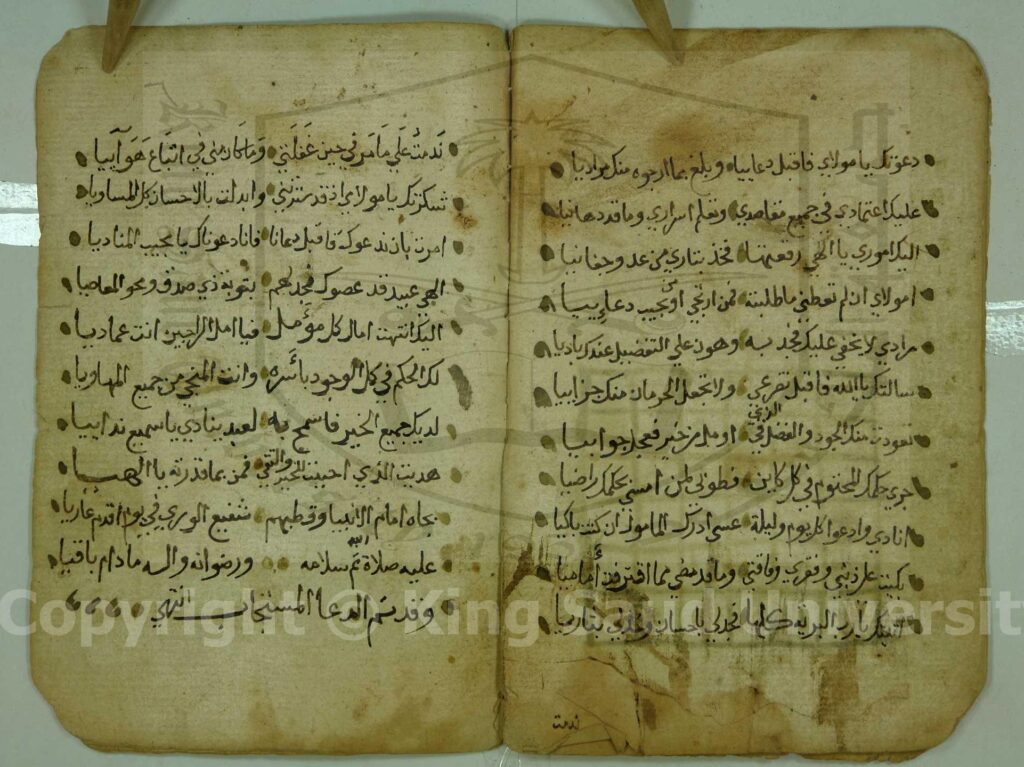 دعوتك يا مولاي فاقبل دعاييا وبلغ بما ارجوه منك مراديا
عليك اعتمادي في جميع مقاصدي وتعلم اسراري وما قد دهانيا
اليك اموري يا الهي رفعتها فخذ بثاري من عدو جفانيا
امولاي ان لم تعطني ما طلبته فمن ارتجي او من يجيب دعاييا
مرادي لا يخفى عليك فجد به وهون علي التفضيل عندك باديا
سالتك يا الله فاقبل تضرعي ولا تجعل الحرمان منك جزاييا
تعودت منك الجود والفضل في الذي اومل من خير فعجل جوابيا
جرى حكمك المحتوم في كل كاين فطوبى لمن امسى بحكمك راضيا
انادي وادعوا كل يوم وليلة عسى ادرك المامول ان كنت باكيا
بكيت على ذنبي وفقري وفاقتي وما قد مضى مما اقترفت أماميا
اتيتك يا رب البرية كلها فجد لي باحسان وخذ لي بثاريا
ندمت
نَدمتُ عَلى مَا مَر في حين غَفلَتي وَمَا كان مني في اتباع هَوَآييا
شكرتك يا مولاي اذ قد سترتني وابدلت بالاحسان كل المساويا
امرت بان ندعوك فاقبل دعانا فانا دعوناك يا مجيب المناديا
الهي عبيد قد عصوك فجد لهم بتوبة ذي صدق ومحو المعاصيا
اليك انتهت امال كل مؤمل فيا امل الراجين انت عماديا
لك الحكم في كل الوجود بأسره وانت المنجي من جميع المهاويا
لديك جميع الخير فاسمح به لعبد ينادي يا سميع نداييا
هديت الذي احببت للخير والتقى فمن بما قدرته يا الهيا
بجاه امام الانبيا وقطبهم شفيع الورى في يوم اقدم عاريا
عليه صلاة الله ثم سلامه ورضوانه والـه مادام باقيا
وقد تم الدعا المستجاب انتهى
Copyright © King Saud University